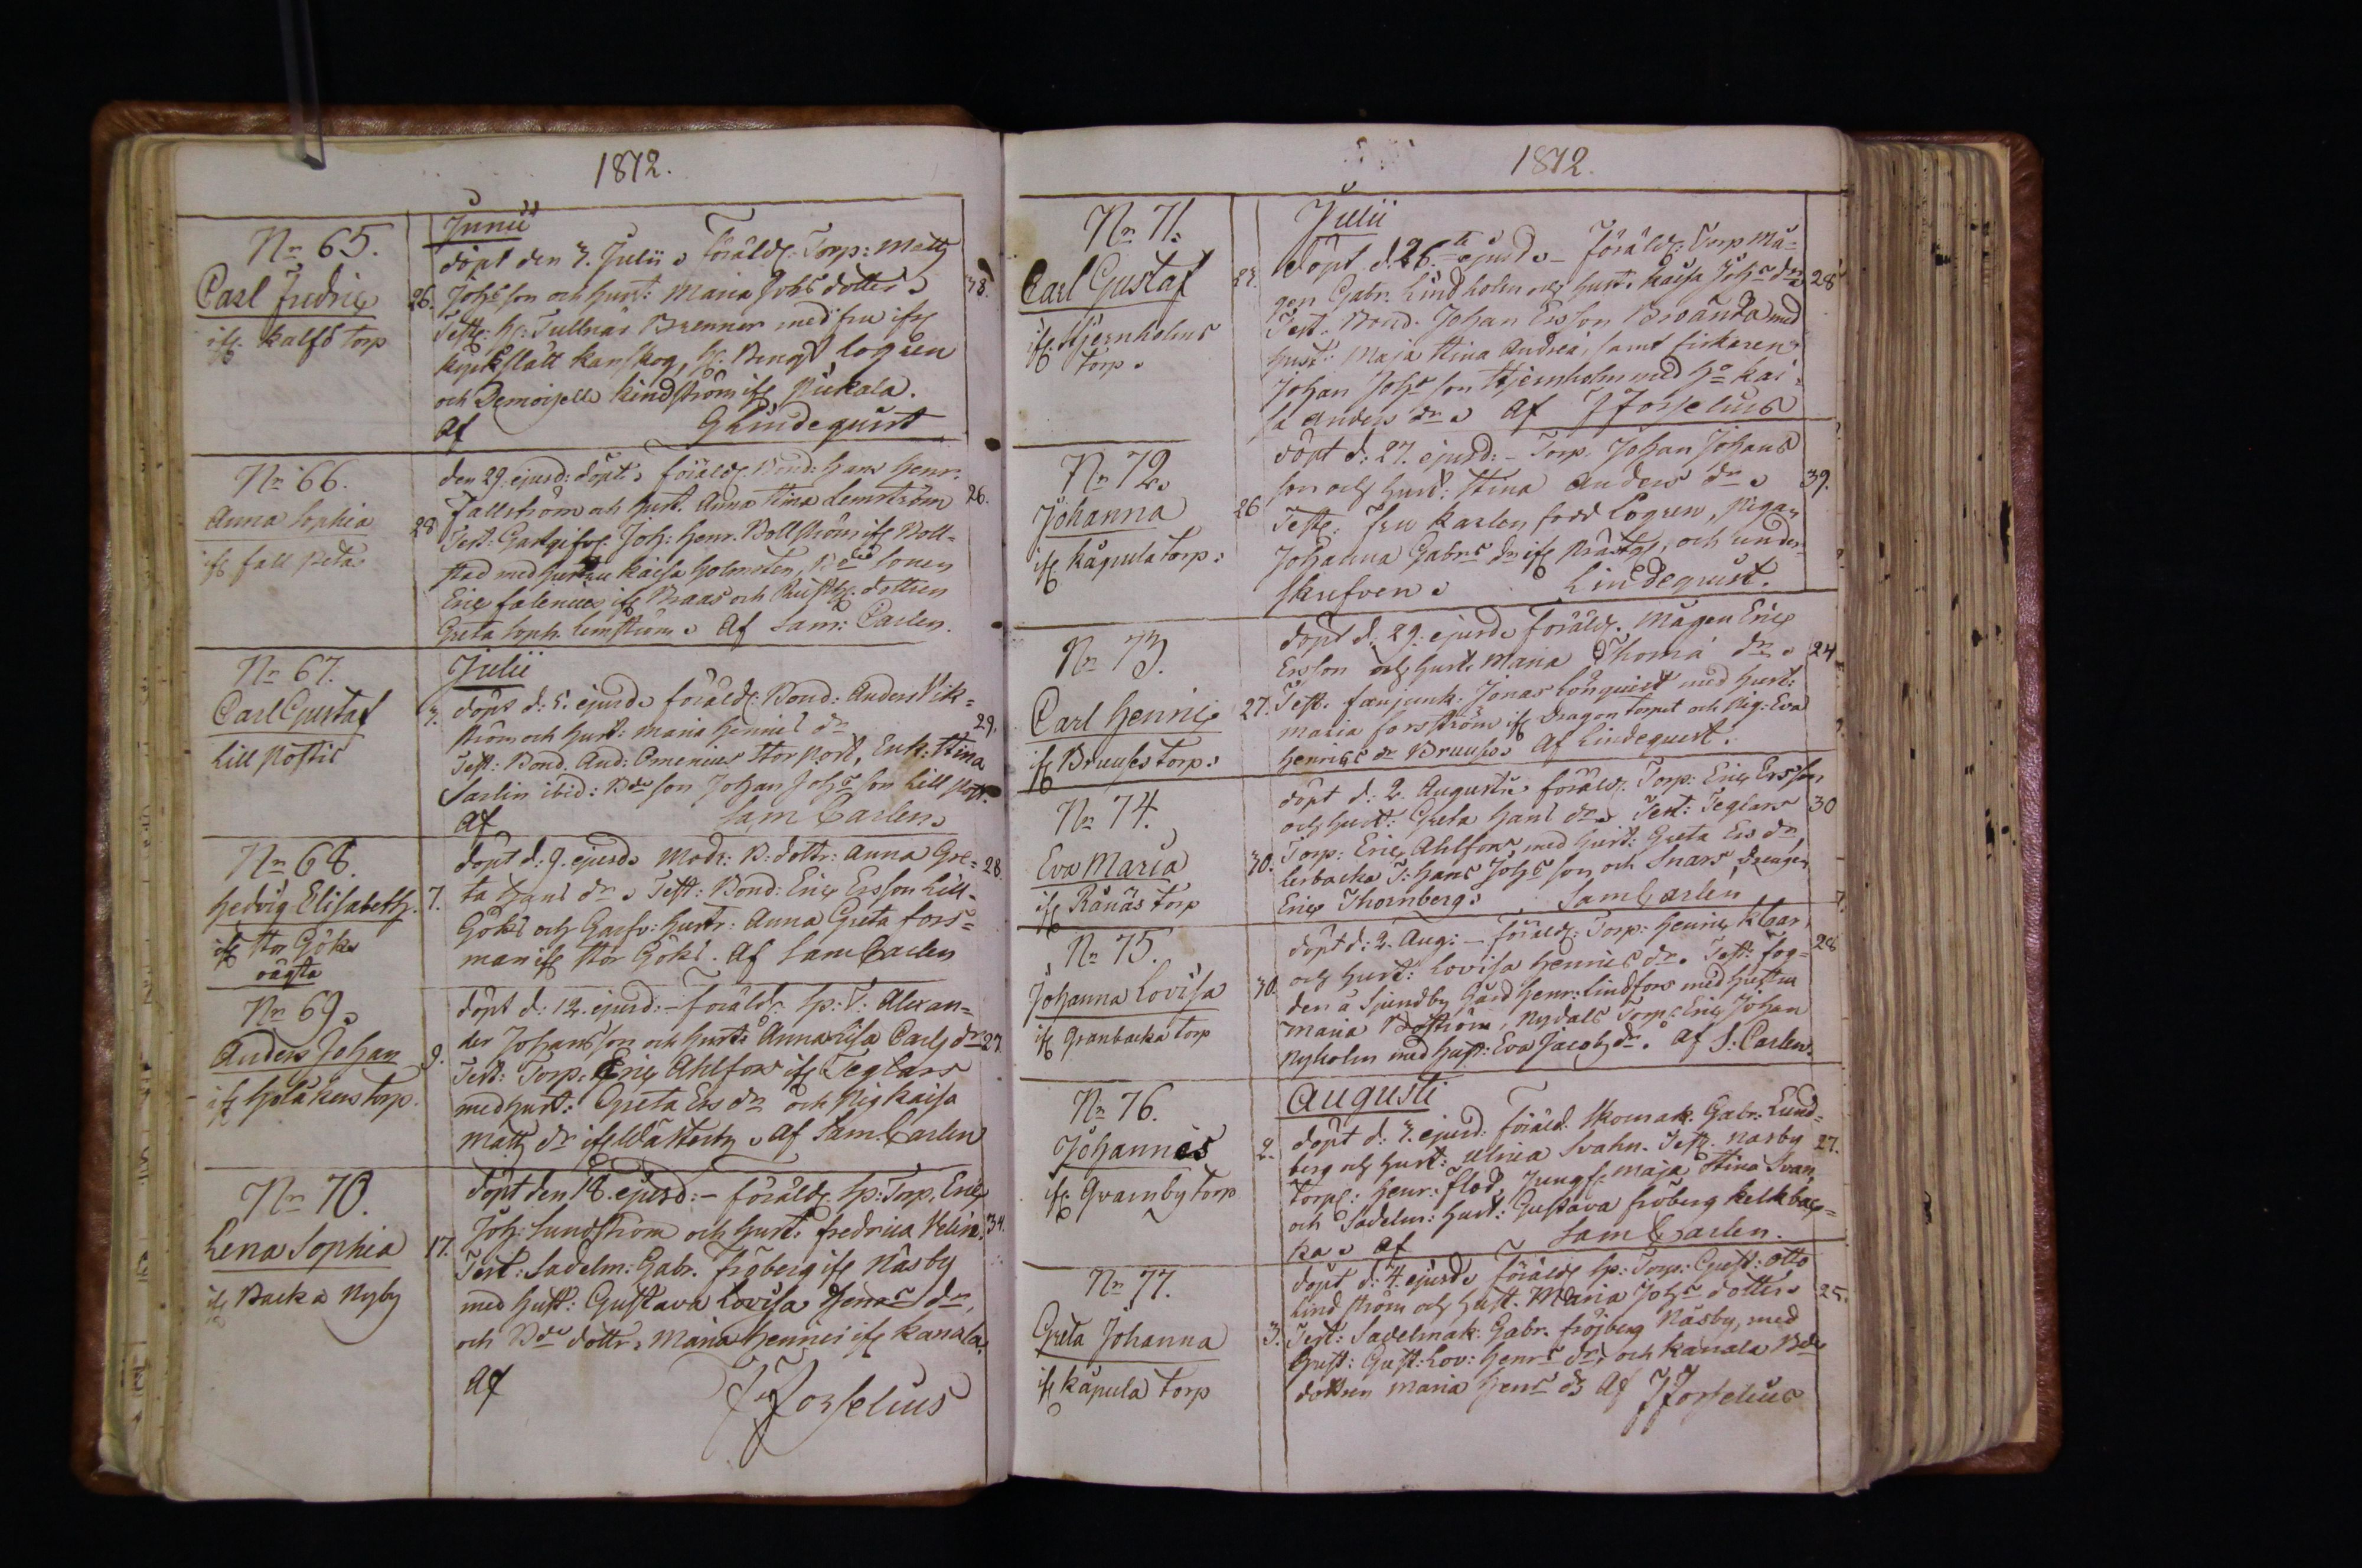 1812.
Junii
Nr 65.
Carl Fredric
ifr. Kalfs torp
26.
döpt den 3. Julii. Föräldr. Torp: Matts
Johsson och hust: Maria Johs dotter.
38.
Test: Hr: Tullnär Brenner med fru ifr
Kyrkslätt Kanskog, Hr. Bengt Logren
och Demoiselle Lindström ifr Pickala.
Af GLindequist
Nr 66.
Anna Sophia
ifr fall Peda
28
den 29. ejusd: döpt, föräldr. Bond: Hans Henr:
Fallström och hust. Anna Stina Lemström
26.
Test: Gästgifvr. Joh: Henr. Bollström ifr Boll-
stad med hustru Kaisa Holmsten, sonen
Eric Falenius ifr Braas och Rusth. dottren
Greta Soph. Lemström. Af Sam: Carlen.
Julii
Nr 67.
Carl Gustaf
Lill Postis
3.
döpt d: 5. ejusd. föräldr. Bond: Anders Wik-
ström och hust: Maria Henrics dr
29.
Test: Bond. And: Omenius Stor Post, Enk: Stina
Sarlin ibid: Bde son Johan Johs son Lill Post.
Af Sam Carlen.
Nr 68.
Hedvig Elisabeth.
ifr Stor Göks
oägta
7.
döpt d: 9. ejusd. Modr: B: dottr: Anna Gre-
28.
ta Hans dr. Test: Bond: Eric Ersson Lill-
Göks och Garfv: hustr: Anna Greta Fors-
man ifr Stor Göks. Af Sam Carlen
Nr 69.
Anders Johan
ifr Holåkers torp.
9.
döpt d: 12. ejusd:- föräldr. Hp: T: Alexan-
der Johansson och hust: Anna Lisa Carls dr
27.
Test: Torp: Eric Ahlfors ifr Teglars
med hust: Greta Ers dr och Pig Kaisa
Matts dr ifr Wästerby. Af Sam. Carlen
Nr 70.
Lena Sophia
ifr Backa Nyby
17.
döpt den 18. ejusd:- föräldr. Hp: Torp. Eric
Joh: Sundström och hust: Fredrica Velin.
34.
Test: Sadelm: Gabr. Fröberg ifr Näsby
med hust: Gustava Lovisa Henrs dr,
och Bde dottr: Maria Henrics ifr Kanala.
Af JForselius
1812.
Julii
Nr 71.
Carl Gustaf
ifr. Stjernholms
torp.
23.
döpt d. 26.te ejusd.- föräldr. Torp Må-
gen Gabr. Lindholm och hust. Kaisa Johs dr
28
Test. Bond. Johan Ersson Broända med
hust: Maja Stina Andreä, samt fiskaren
Johan Johs son Stjernholm med ho Kai-
sa Anders dr. Af JForselius
Nr 72.
Johanna
ifr Kåpula torp:
26
döpt d: 27. ejusd:- Torp. Johan Johans
son och hust: Stina Anders dr.
39.
Test: Fru Karlen född Logren, Pigan
Johanna Gabrs dr ifr Prästg., och under-
skrifven. Lindequist.
Nr 73.
Carl Henric
ifr Bruuses torp.
27.
döpt d: 29. ejusd. föräldr. Mågen Eric
Ersson och hust. Maria Thomä dr.
24
Test. fanjunk. Jonas Lönquist med hust:
Maria Forsström ifr Dragon torpet och Pig: Eva
Henrics dr Bruuses. Af Lindequist.
Nr 74.
Eva Maria
ifr Rånäs torp
30.
döpt d: 2. Augusti. föräldr. Torp: Eric Ersson
och hust: Greta Hans dr. Test: Teglars
30
Torp: Eric Ahlfors, med hust: Greta Ers dr,
lerbacka T: Hans Johs son och Snars drengen
Eric Thornberg. Sam Carlen
Nr 75.
Johanna Lovisa
ifr Granbacka torp
30.
döpt d: 2. Aug:- föräldr: Torp: Henric Klar,
och hust: Lovisa Henrics dr. Test: fog-
28
den å Sjundby Gård Henr: Lindfors med hustru
Maria Boström, Nydals Torp: Eric Johan
Nyholm med hust: Eva Jacobs dr. Af S: Carlen.
Augusti
Nr 76.
Johannes
ifr Qvarnby torp
2.
döpt d: 3. ejusd: föräld. Skomak: Gabr: Lund-
berg och hust: Ulrica Svahn. Test. Näsby
27.
torp: Henr: Flod, Jungf. Maja Stina Svan,
och Sadelm: hust: Gustava Fröberg Kelkbac-
ka. Af Sam Carlen.
Nr 77.
Greta Johanna
ifr Kåpula torp
3.
döpt d: 4. ejusd. föräldr Hp: Torp: Gust: Otto
Lindström och hust. Maria Johs dotter.
25.
Test: Sadelmak: Gabr. Fröjberg Näsby, med
hust: Gust: Lov: Henrs dr, och Kanala Bde
dottren Maria Henrs dr Af JForselius